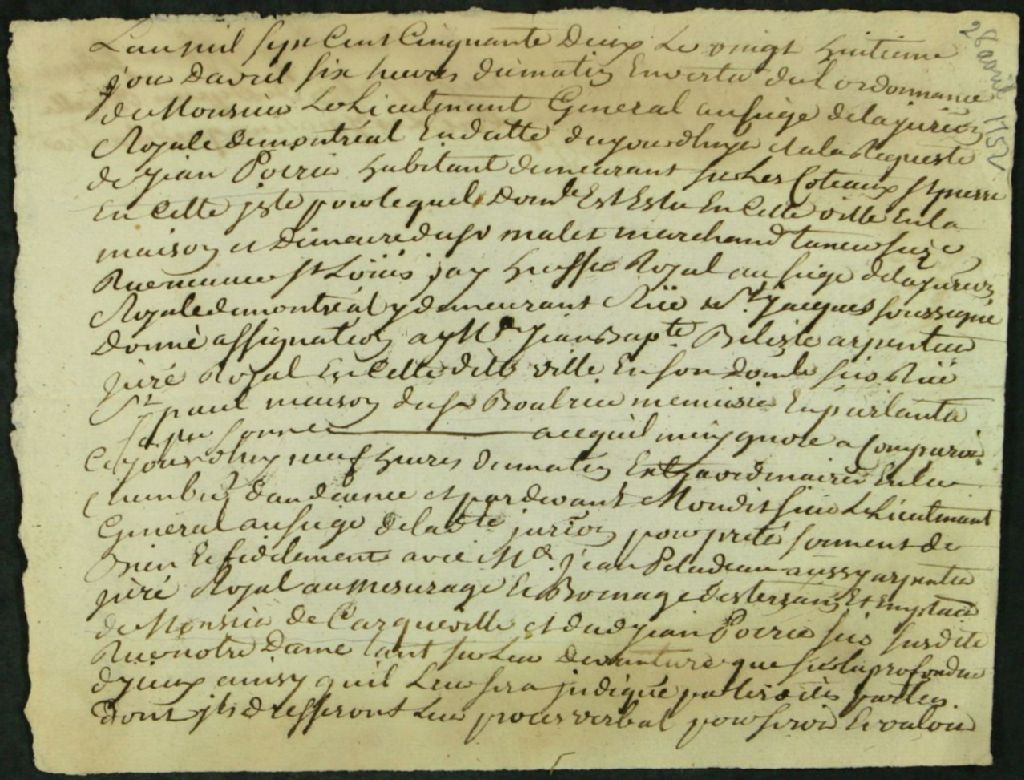 L'an mil sept Cent Cinquante Deux Le vingt huitieme
jour d'avril six heures du matin En vertu de L'ordonnance
de Monsieur Le Lieutenant General au siege de la jurion
Royale de montreal En datte de ce jourdhuy et a la Requeste
de jean Poirie habitant demeurant sur Les Coteaux St pierre
En Cette isle pour lequel domle Est Eslu En Cette ville En la
maison et Demeure du Sr malet marchand taneur size
Rue St Loüis jay huissier Royal au siege de la jurion
Royale de montréal y demeurant Rüe St. Jacques soussigné
Donné assignation a Me jean Bapte. Belisle arpenteur
juré Royal En Cette ditte ville En son domle sise Rüe
St paul maison du Sr menuisie En parlant a
sa personne a ce quil nen ignore a Comparoir
Ce jourdhuy neuf heures du matin Extraordinaire En la
Chambre d'audience et par devant Mondit sieur Le Lieutenant
General au siege de la dte jurion pour preté serment de
Bien Et fidelement avec Me. jean Peladeau aussy arpenteur
juré Royal au mesurage Et Bornage des terrains Et Emplace
de Monsieur de Carqueville et dud jean Poirie sis susdite
Rue notre Dame tant sur Leur devanture que sur la profondeur
d'yceux ainsy quil Leur sera jndiqué par les dites parties.
Dont jls dresseront Leur proces verbal pour servir Et valoir
28 avril 1752